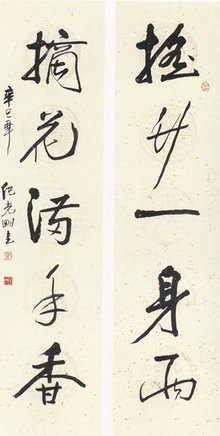 搖竹一身雨
摘花满手香
辛巳年 纪光明书